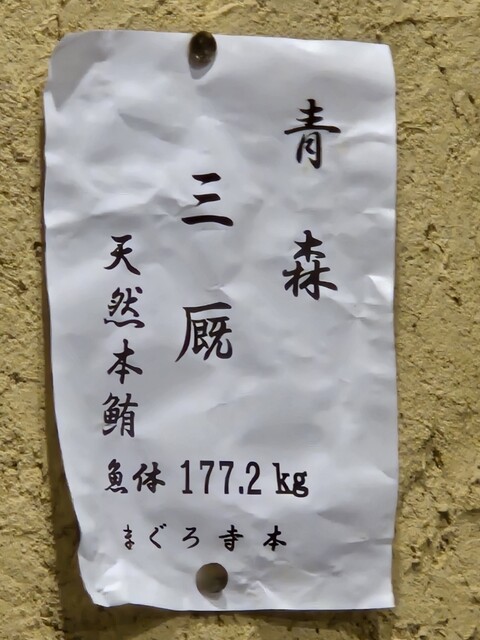 青森
三厩
天然本鮪
魚体 177.2 kg
まぐろ寺本